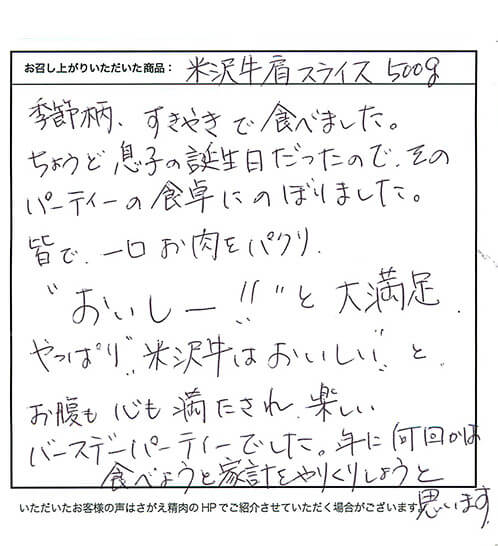 お召し上がりいただいた商品： 米沢牛肩スライス 500g
季節柄、すきやきで食べました。
ちょうど息子の誕生日だったので、その
パーティーの食卓にのぼりました。
皆で、一口お肉をパクリ、
"おいしー!!"と大満足、
やっぱり"米沢牛はおいしい"と、
お腹も心も満たされ、楽しい
バースデーパーティーでした。年に何回かは
食べようと家計をやりくりしようと
思います。
いただいたお客様の声はさがえ精肉のHPでご紹介させていただく場合がございます。